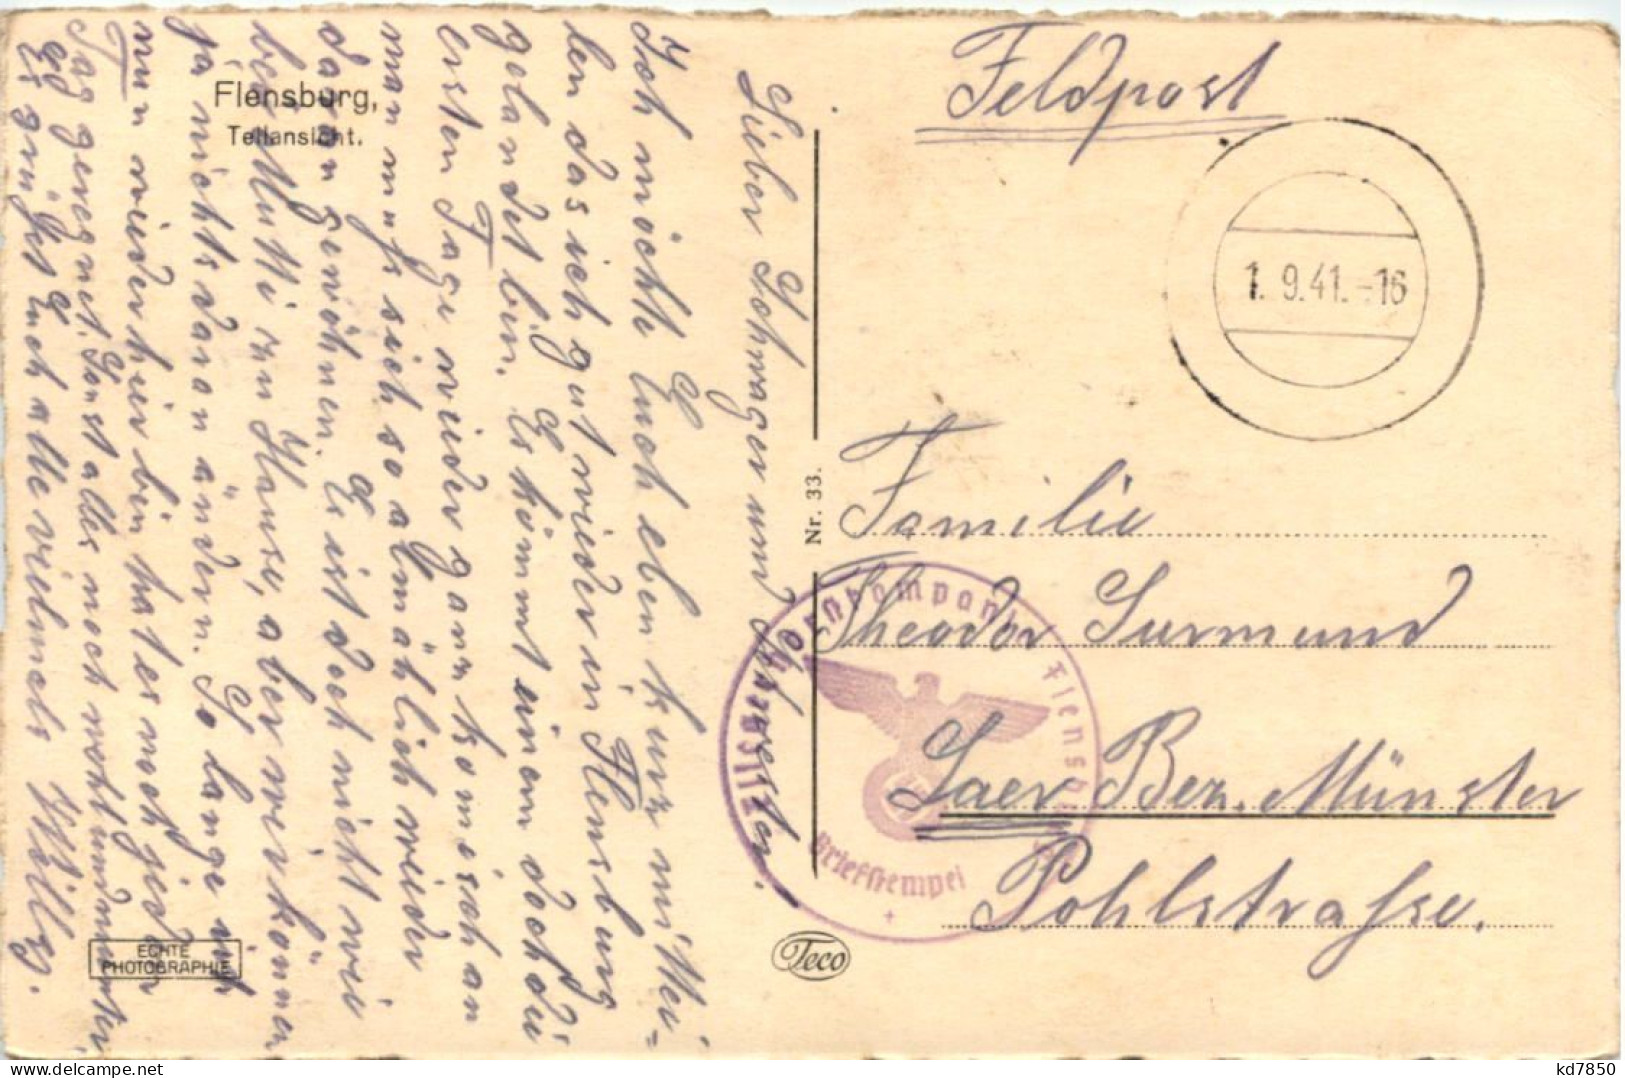 Flensburg,
Teilansicht.
Lieber Schwager und Schwester.
Ich möchte Euch eben kurz mittei=
len das ich gut wieder in Flensburg
gelandet bin. Es kömmt einem doch die
ersten Tage wieder ganz komisch an
man muß sich so almählich wieder
daran gewöhnen. Es ist doch nicht wie
bei Mutti zu Hause, aber wir können
ja nichts daran ändern. So lange ich
nun wieder hier bin hat es noch jeder
Tag geregnet. Sonst alles noch wohl und munter
Es grüßet Euch alle vielmals Willy.
ECHTE
PHOTOGRAPHIE
Nr. 33.
Teco
Feldpost
1.9.41.-16
Familie
Theodor Surmund
Laer Bez. Münster
Pohlstraße.
Briefstempel
kd7850